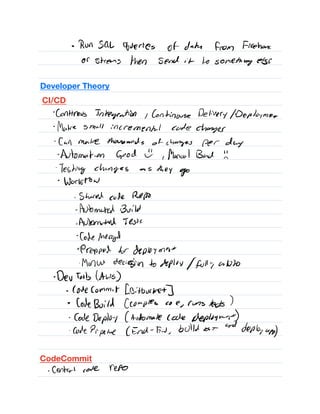 • Run SQL queries of data from Firehose
or streams then send it to something else
Developer Theory
CI/CD
• Continous Integration, Continouse Delivery/Deployment
• Make small incremental code changes
• Can make thousands of changes per day
• Automation Good :) , Manual Bad :(
• Testing changes as they go
• Workflow
• Shared code Repo
• Automated Build
• Automated Tests
• Code Merged
• Prepped for deployment
• Manual decision to deploy / fully auto
• Dev Tools (AWS)
• Code Commit [Bitbucket]
• Code Build (compiles code, runs tests)
• Code Deploy (Automate Code deployment)
• Code Pipeline (End-End, build and deploy)
CodeCommit
• Central code repo